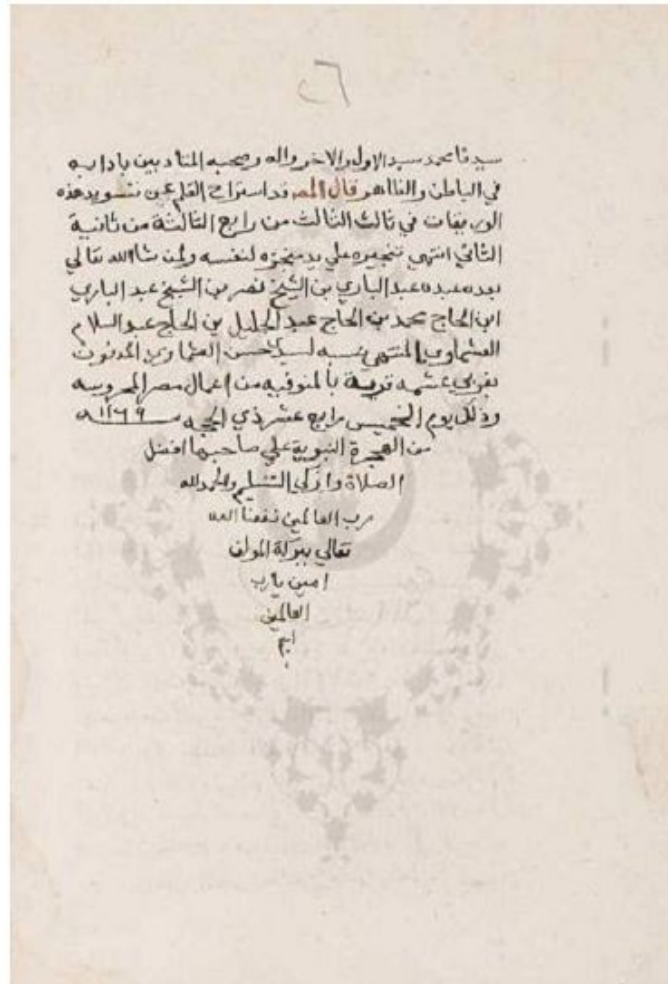 ٤٦
سيدنا محمد سيد الاول والاخر واله وصحبه المتأدبين بادابه
في الباطن والظاهر قال المص قد استراح القلم عن تسويد هذه
الوريقات في ثالث الثالث من رابع الثالثة من ثانية
الثاني انتهي تنجيزه علي يد منجزه لنفسه ولمن شاالله تعالي
بعده عبده عبد الباري بن الشيخ نصر بن الشيخ عبد الباري
ابن الحاج محمد بن الحاج عبد الجليل بن الحاج عبد السلام
العشماوي المنتهي نسبه لسيد حسن العشماوي المدفون
بغربي عشمه قرية بالمنوفيه من اعمال مصر المحروسه
وذلك يوم الخميس رابع عشر ذي الحجه سنة ١١٦٩
من الهجرة النبوية علي صاحبها افضل
الصلاة وازكي التسليم والحمدلله
رب العالمين نفعنا الله
تعالي ببركة المولف
امين يارب
العالمين